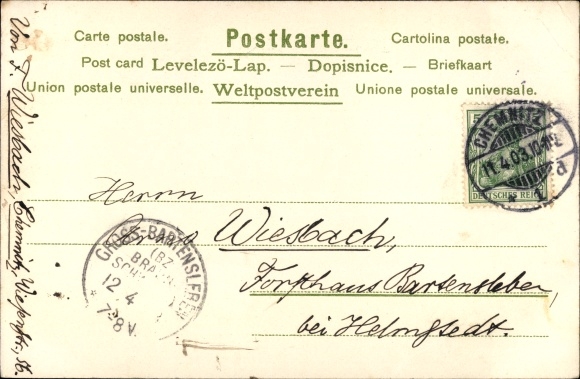 Carte postale. Postkarte. Cartolina postale.
Post card Levelezö-Lap. — Dopisnice. — Briefkaart
Union postale universelle. Weltpostverein Unione postale universale.
CHEMNITZ
11.4.03.10-11
d
DEUTSCHES REICH
Herrn
Wiesbach,
Forsthaus Bartensleben,
bei Helmstedt.
GROSS-BARTENSLEBEN
(BZ
12.4
7-8V.
Von F. Wiesbach, Chemnitz,